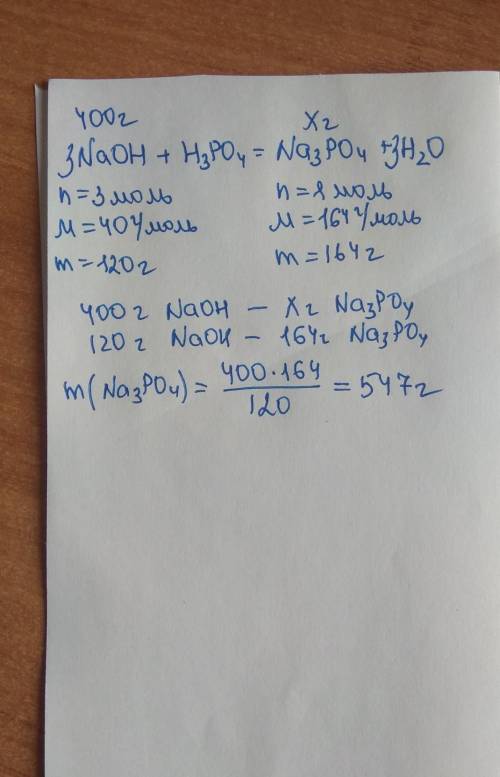 400г Xг
3NaOH + H₃PO₄ = Na₃PO₄ + 3H₂O
n = 3 моль n = 1 моль
M = 40 г/моль M = 164 г/моль
m = 120 г m = 164 г
400 г NaOH — Xг Na₃PO₄
120 г NaOH — 164г Na₃PO₄
m(Na₃PO₄) = 400·164 / 120 = 547г